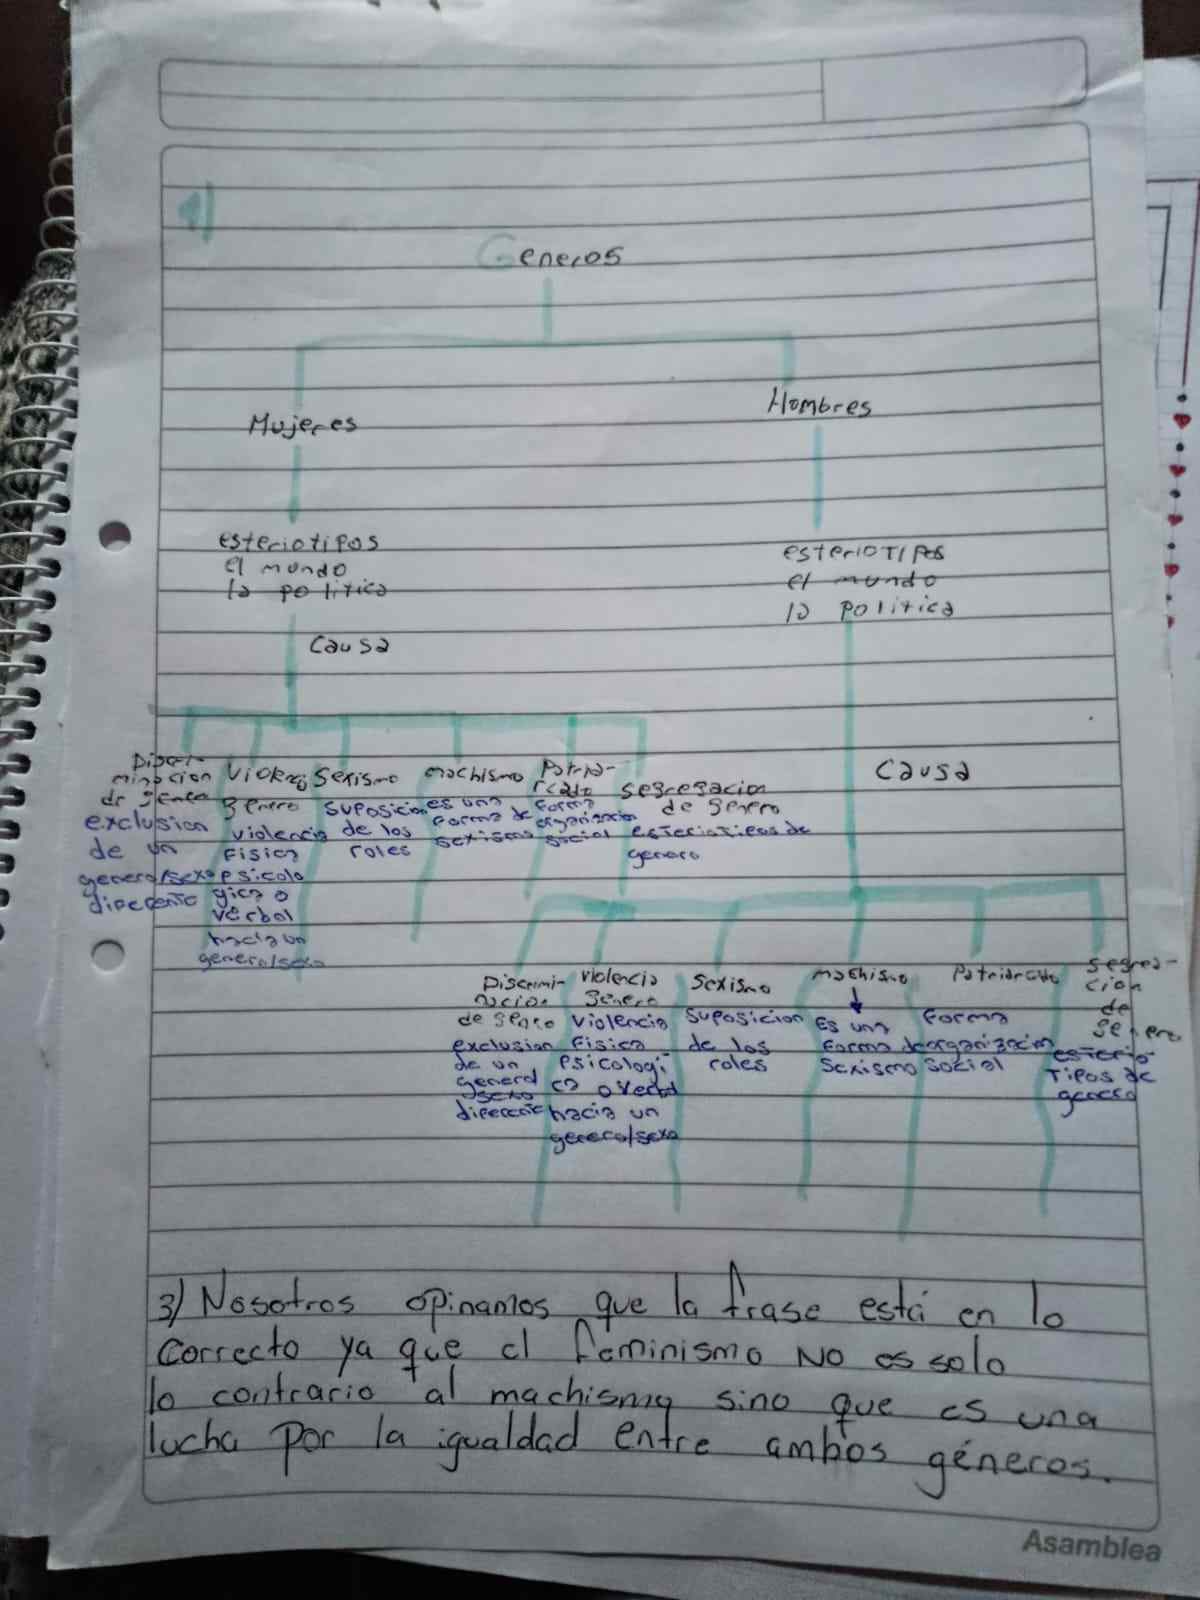 Generos
Mujeres
Hombres
esteriotipos
el mundo
la politica
Causa
esteriotipos
el mundo
la politica
Causa
Discri-
minacion
de genero
exclusion
de un
genero/sexo
diferente
genero
violencia
fisica
psicolo
gica o
verbal
hacia un
genero/sexo
Sexismo
suposicion
de los
roles
machismo
es una
forma de
sexismo
Patria-
rcado
forma
organizacion
social
segregacion
de genero
esteriotipos de
genero
Discrimi-
nacion
de genero
exclusion
de un
genero
sexo
diferente
violencia
genero
violencia
fisica
psicologi
ca o verbal
hacia un
genero/sexo
Sexismo
suposicion
de los
roles
machismo
Es una
forma de
sexismo
Patriarcado
forma
organizacion
social
segrega-
cion
de
genero
esterio-
tipos de
genero
3) Nosotros opinamos que la frase está en lo
correcto ya que el feminismo NO es solo
lo contrario al machismo sino que es una
lucha por la igualdad entre ambos géneros.
Asamblea